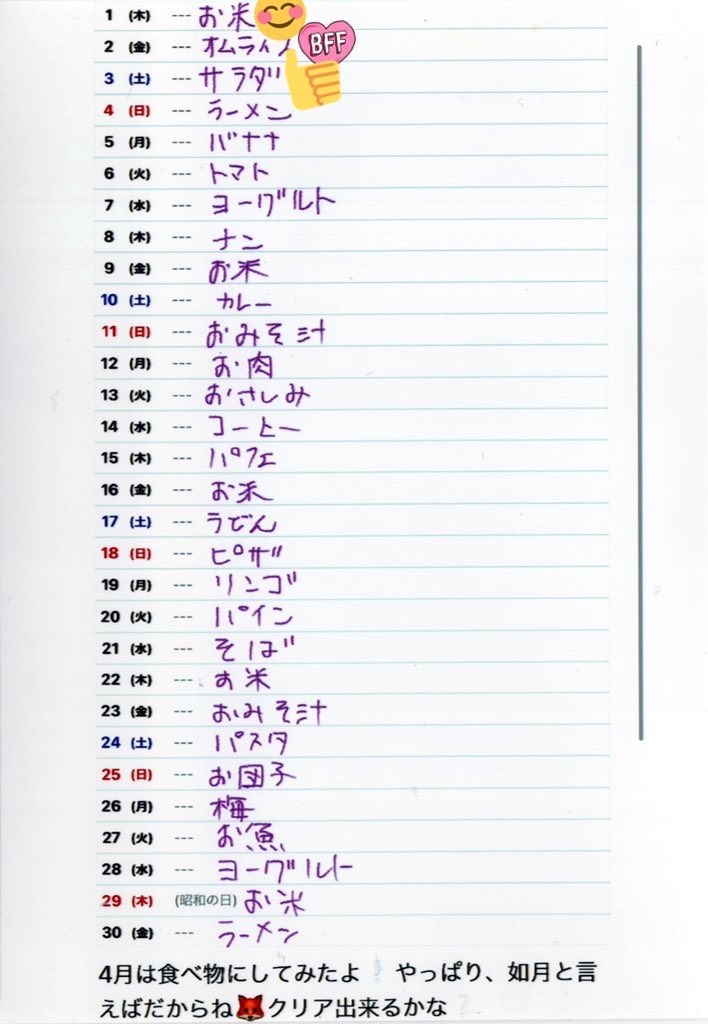 1 (木) --- お米
BFF
2 (金) --- オムライス
3 (土) --- サラダ
4 (日) --- ラーメン
5 (月) --- バナナ
6 (火) --- トマト
7 (水) --- ヨーグルト
8 (木) --- ナン
9 (金) --- お米
10 (土) --- カレー
11 (日) --- おみそ汁
12 (月) --- お肉
13 (火) --- おさしみ
14 (水) --- コーヒー
15 (木) --- パフェ
16 (金) --- お米
17 (土) --- うどん
18 (日) --- ピザ
19 (月) --- リンゴ
20 (火) --- パイン
21 (水) --- そば
22 (木) --- お米
23 (金) --- おみそ汁
24 (土) --- パスタ
25 (日) --- お団子
26 (月) --- 梅
27 (火) --- お魚
28 (水) --- ヨーグルト
29 (木) (昭和の日) お米
30 (金) --- ラーメン
4月は食べ物にしてみたよ やっぱり、如月と言
えばだからね🦊クリア出来るかな